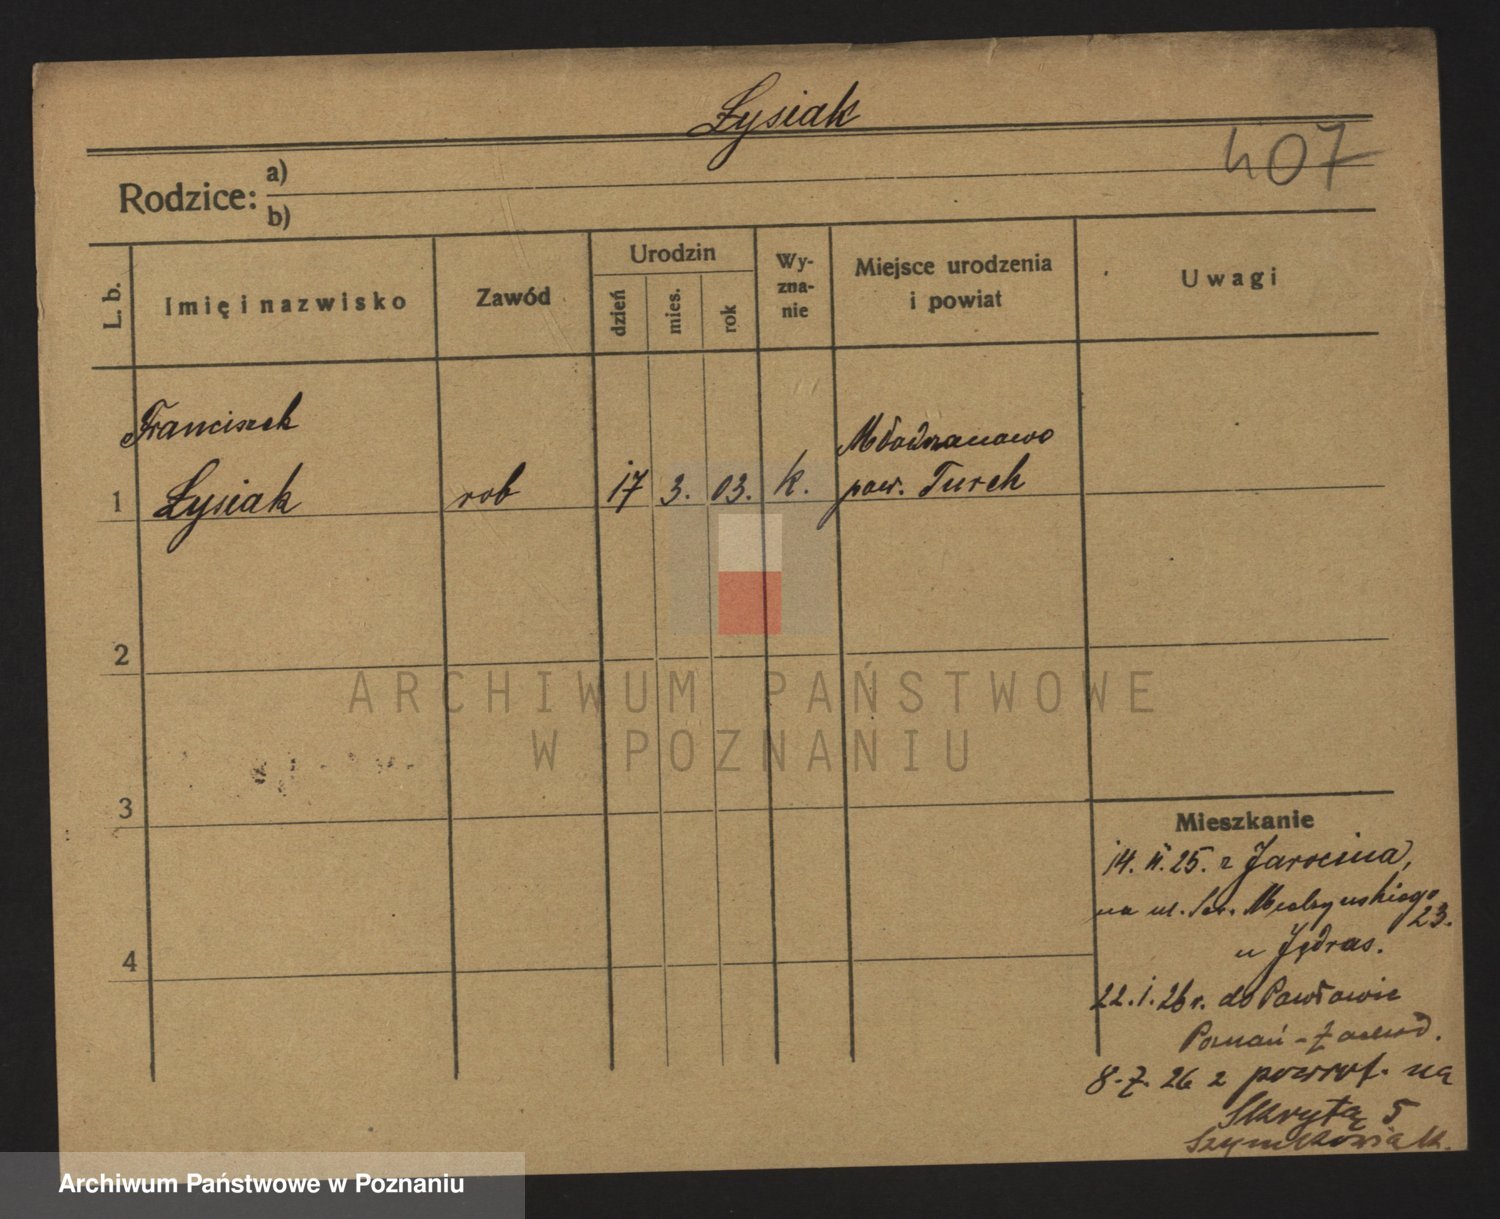 Łysiak
407
Rodzice: a)
b)
L. b.
Imię i nazwisko
Zawód
Urodzin
dzień
mies.
rok
Wy-
zna-
nie
Miejsce urodzenia
i powiat
Uwagi
Franciszek
1 Łysiak rob 17 3. 03. k.
Młodzanowo
pow. Turek
2
3
4
Mieszkanie
14. II. 25. z Jarocina,
na ul. Sew. Mielżyńskiego
23.
u Jędras.
22. I. 26 r. do Pawłowic
Poznań - Zachód.
8. 7. 26 z powrot. na
Skrytą 5
Szymkowiak.
ARCHIWUM PAŃSTWOWE
W POZNANIU
Archiwum Państwowe w Poznaniu